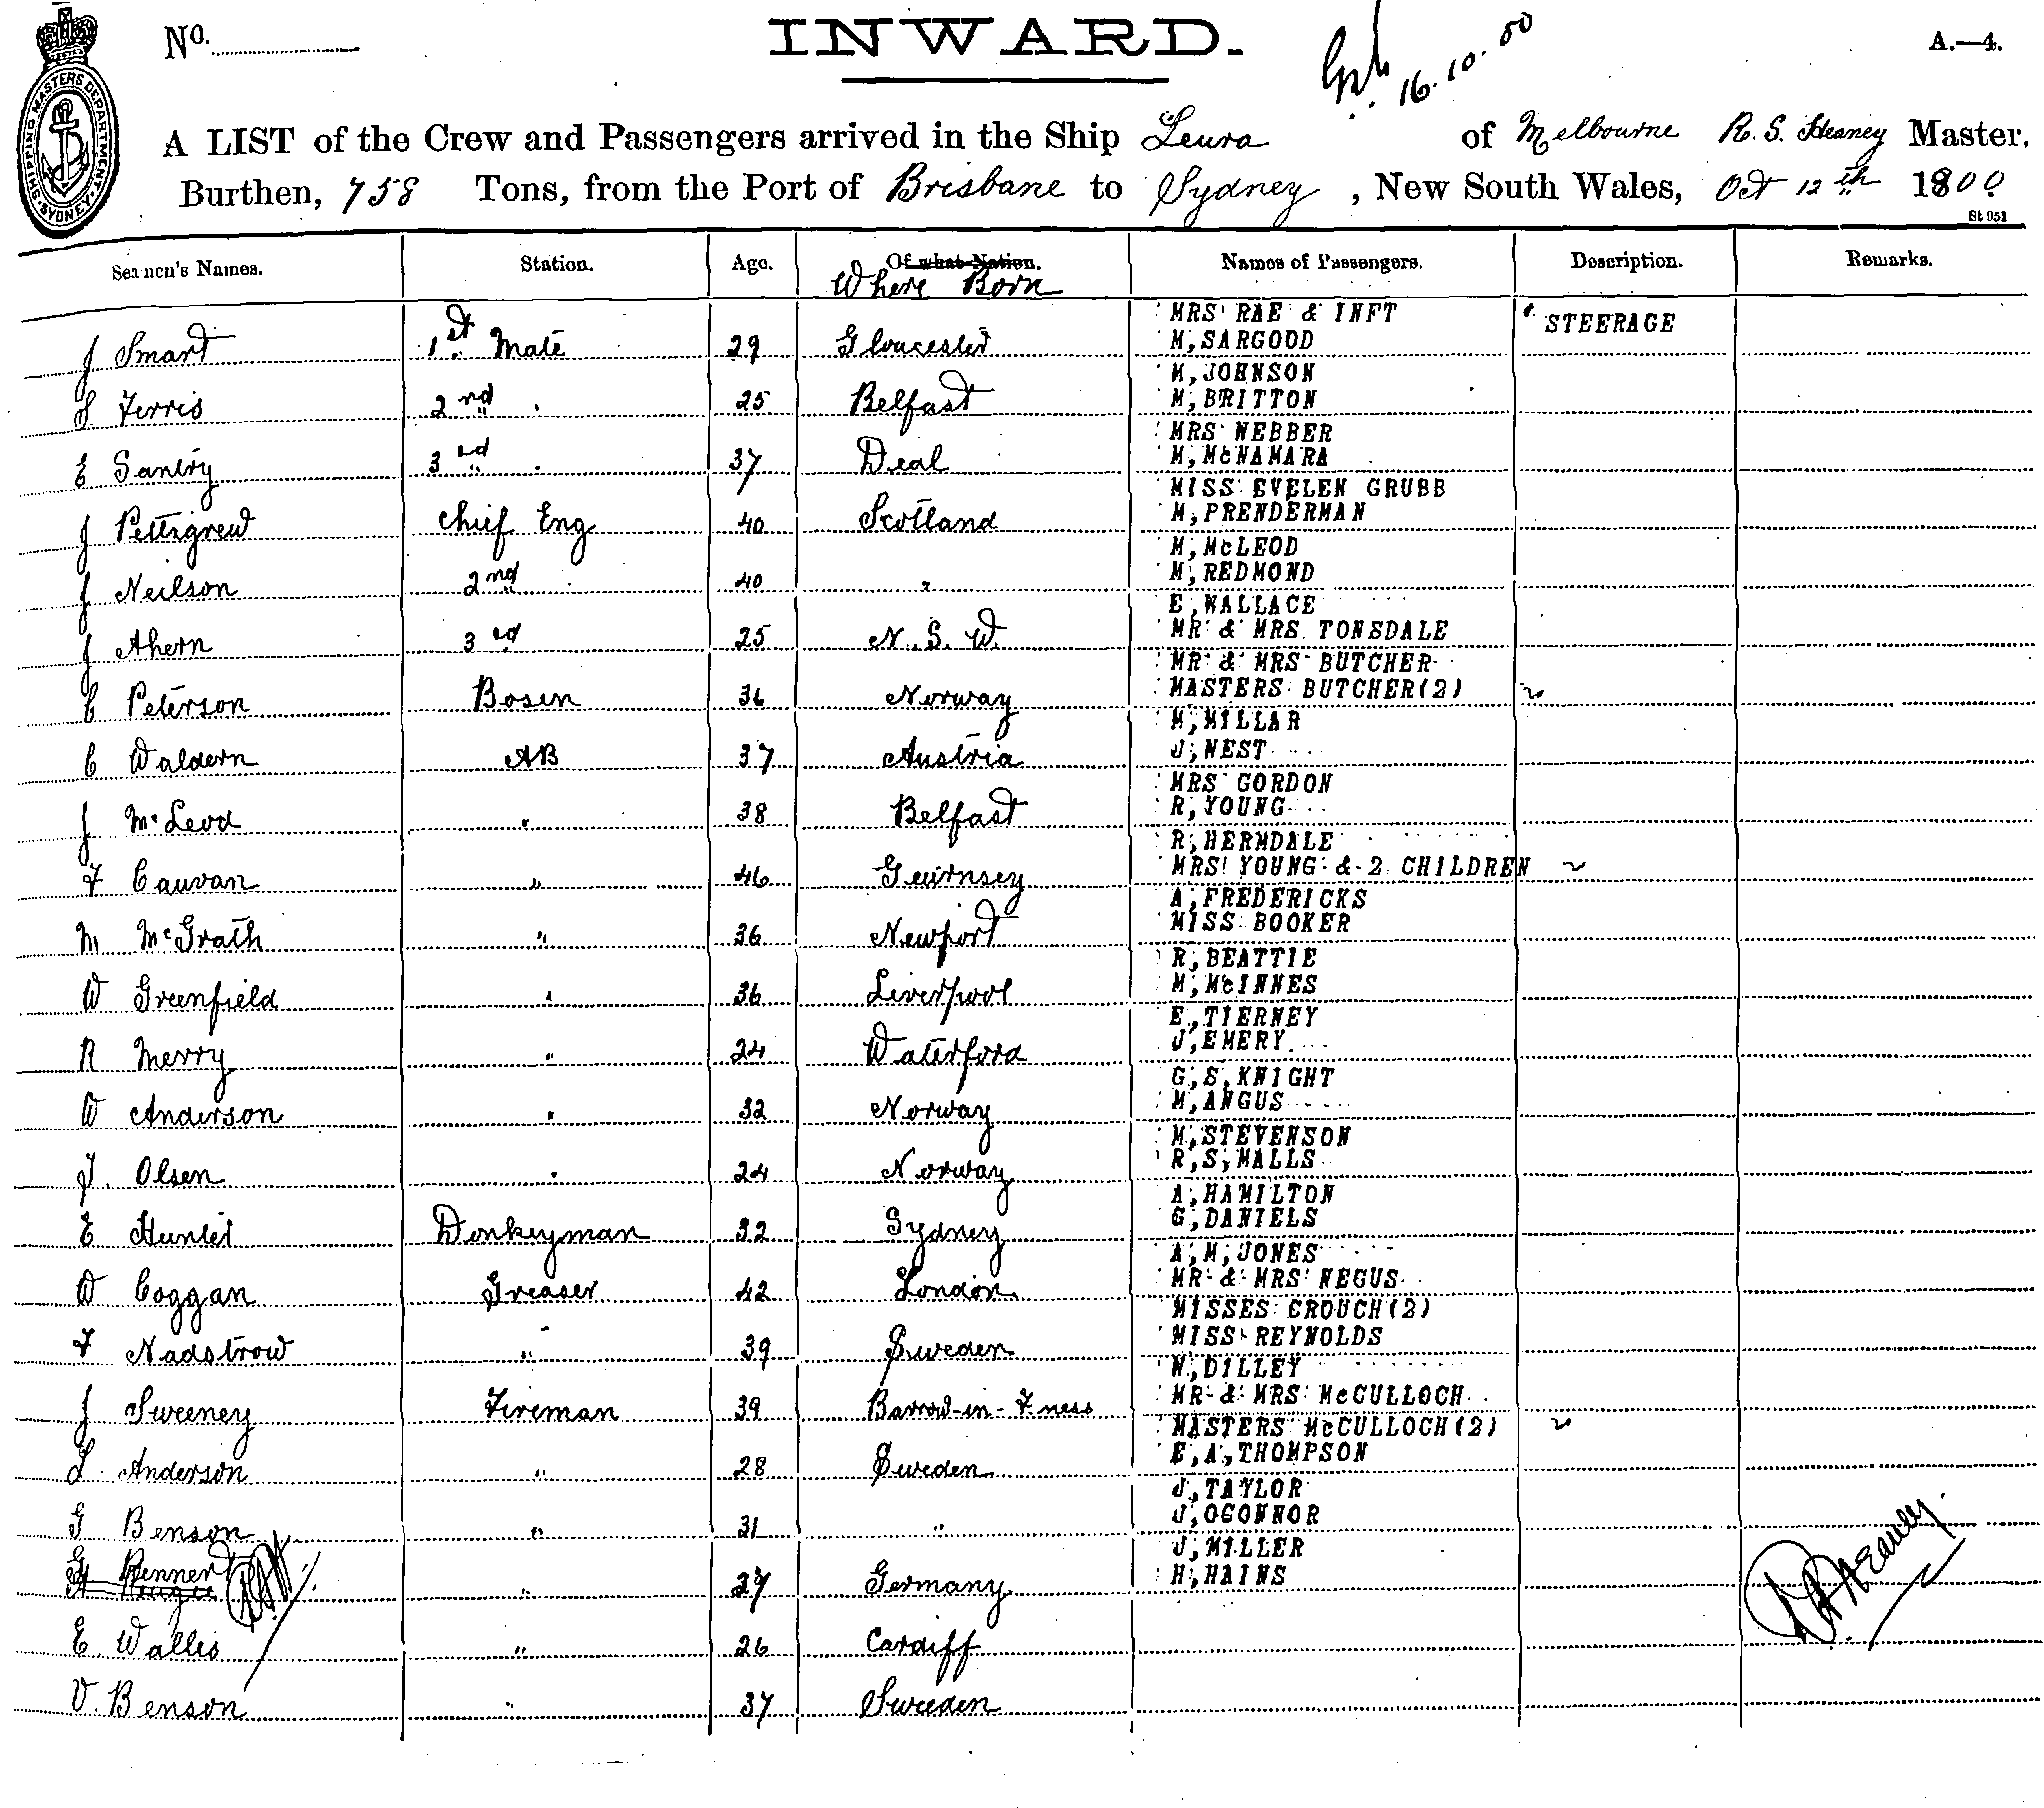 No. INWARD. 16.10.00 A.—4.
SHIPPING MASTERS DEPARTMENT. SYDNEY
A LIST of the Crew and Passengers arrived in the Ship Leura of Melbourne R. S. Heaney Master,
Burthen, 758 Tons, from the Port of Brisbane to Sydney, New South Wales, Oct 12th 1900
St 051
Seamen's Names. Station. Age. Of what Nation. Names of Passengers. Description. Remarks.
Where Born
MRS RAE & INFT STEERAGE
J Smart 1st Mate 29 Gloucester M, SARGOOD
M, JOHNSON
S Ferris 2nd " 25 Belfast M, BRITTON
MRS WEBBER
E Santry 3rd " 37 Deal M, McNAMARA
MISS EVELEN GRUBB
J Pettigrew Chief Eng 40 Scotland M, PRENDERMAN
M, McLEOD
J Neilson 2nd " 40 " M, REDMOND
E, WALLACE
J Ahern 3rd 25 N. S. W. MR & MRS TONSDALE
MR & MRS BUTCHER
C Peterson Bosen 36 Norway MASTERS BUTCHER (2)
M, MILLAR
C Waldern AB 37 Austria J, WEST
MRS GORDON
J McLeod " 38 Belfast R, YOUNG
R, HERMDALE
F Cauvan " 46 Geurnsey MRS YOUNG & 2 CHILDREN
A, FREDERICKS
M McGrath " 36 Newport MISS BOOKER
R, BEATTIE
W Greenfield " 36 Liverpool M, McINNES
E, TIERNEY
R Merry " 24 Waterford J, EMERY
G, S, KNIGHT
W Anderson " 32 Norway M, ANGUS
M, STEVENSON
J. Olsen " 24 Norway R, S, WALLS
A, HAMILTON
E Hunter Donkeyman 32 Sydney G, DANIELS
A, M, JONES
W Coggan Greaser 42 London MR & MRS NEGUS
MISSES CROUCH (2)
F Nadstrow " 39 Sweden MISS REYNOLDS
W, DILLEY
J Sweeney Fireman 39 Barrow-in-F.ness MR & MRS McCULLOCH
MASTERS McCULLOCH (2)
L Anderson " 28 Sweden E, A, THOMPSON
J, TAYLOR
G Benson " 31 " J, OCONNOR
J, MILLER
G Renner " 27 Germany H, HAINS
E. Wallis " 26 Cardiff
V. Benson " 37 Sweeden
R S Heaney